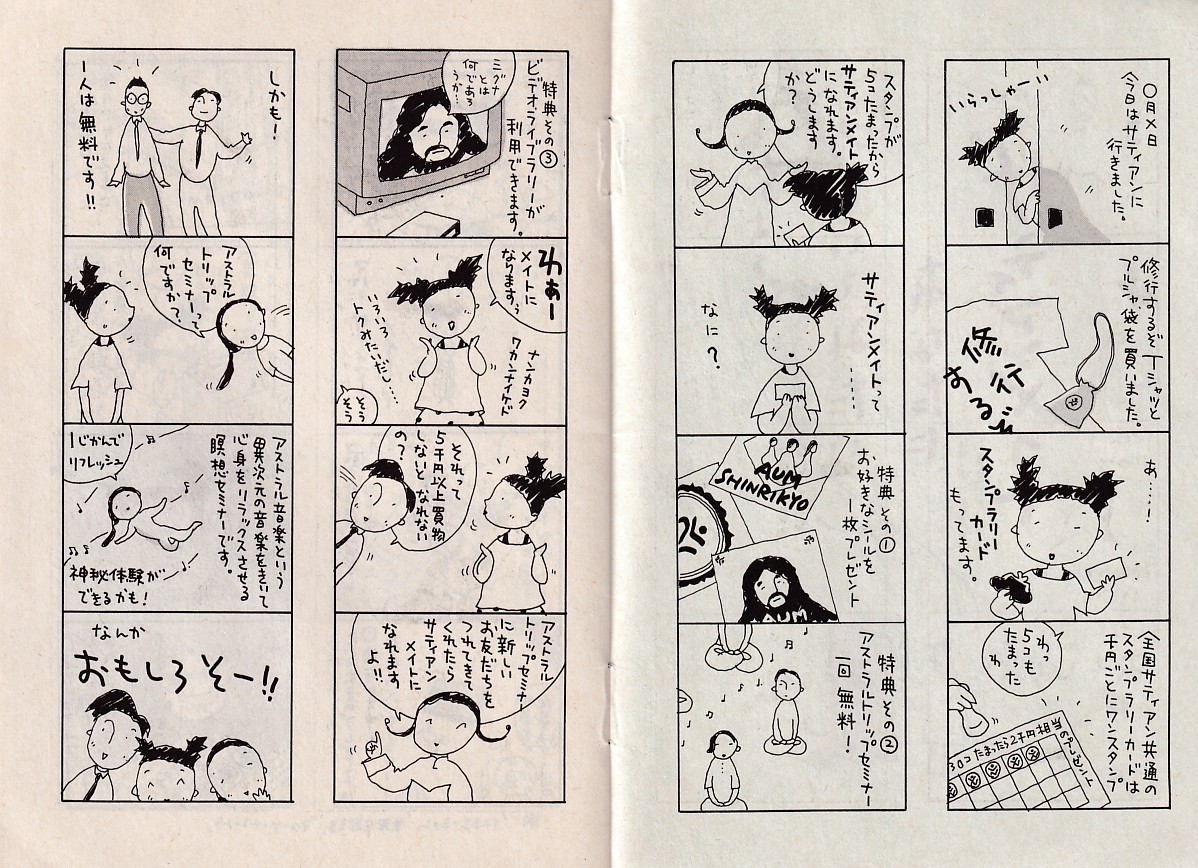 〇月×日
今日はサティアンに
行きました。
いらっしゃーい
修行するぞTシャツと
プルシャ袋を買いました。
修行
するぞ
あ…!
スタンプラリー
カード
もってます。
全国サティアン共通の
スタンプラリーカードは
千円ごとにワンスタンプ
わっ
5コも
たまった
わ
30コたまったら2千円相当のプレゼント
スタンプが
5コたまったから
サティアンメイト
になれます。
どうします
か?
サティアンメイトって
……
なに?
特典その①
お好きなシールを
一枚プレゼント
AUM
SHINRIKYO
AUM
特典その②
アストラルトリップセミナー
一回無料!
特典その③
ビデオ・ライブラリーが
利用できます。
ミグナ
とは
何であろ
うか…
わぁー
メイトに
なりますぅ
ナンカヨク
ワカンナイケド
いろいろ
トクみたいだし…
そう
そう
それって
5千円以上買物
しないとなれない
の?
アストラル
トリップセミナー
に新しい
お友だちを
つれてきて
くれたら
サティアン
メイトに
なれます
よ!!
しかも!
1人は無料です!!
アストラル
トリップ
セミナーって
何ですか?
アストラル音楽という
異次元の音楽をきいて
心身をリラックスさせる
瞑想セミナーです。
1じかんで
リフレッシュ
神秘体験が
できるかも!
なんか
おもしろそー!!